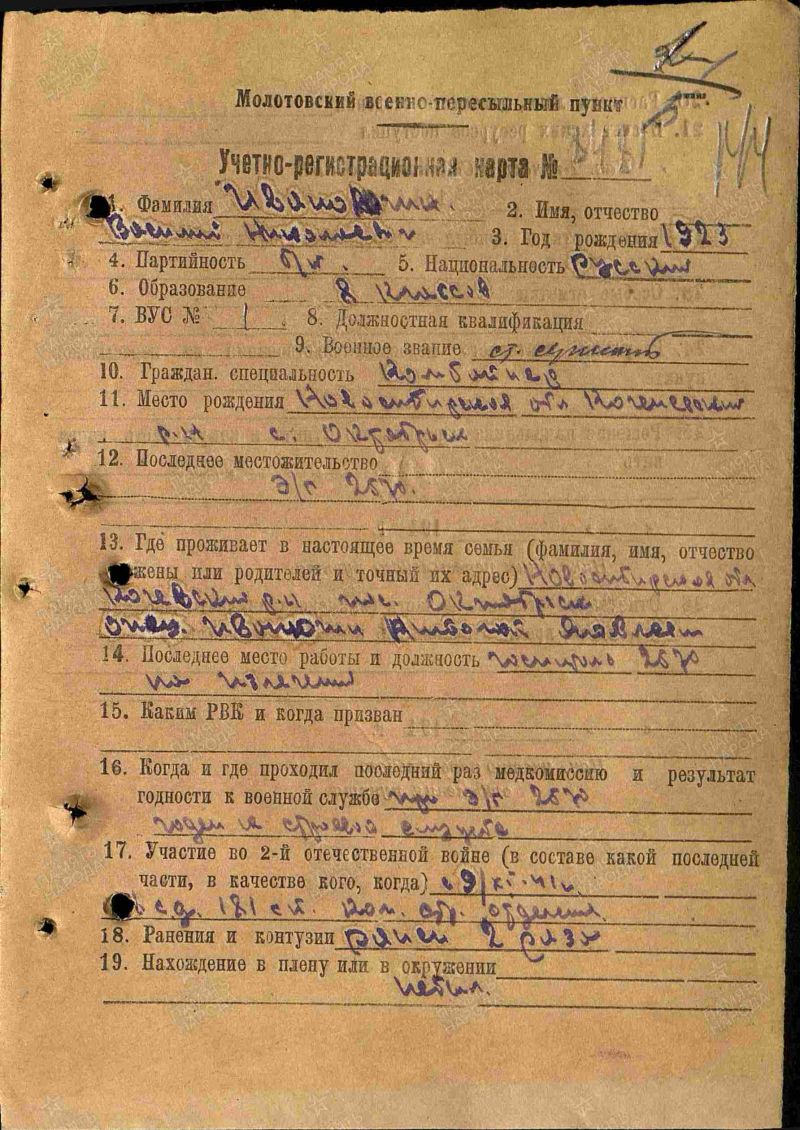 Молотовский военно-пересыльный пункт
Учетно-регистрационная карта №
1. Фамилия 2. Имя, отчество
Василий Николаевич 3. Год рождения 1923
4. Партийность б/п. 5. Национальность Русский
6. Образование 8 классов
7. ВУС № 1 8. Должностная квалификация
9. Военное звание ст. сержант
10. Граждан. специальность Комбайнер
11. Место рождения Новосибирская обл
р.н с. Октябрьск
12. Последнее местожительство
Э/г 2570.
13. Где проживает в настоящее время семья (фамилия, имя, отчество
жены или родителей и точный их адрес) Новосибирская обл
р.н пос. Октябрьск
отец. Николай
14. Последнее место работы и должность госпиталь 2570
на излечении
15. Каким РВК и когда призван
16. Когда и где проходил последний раз медкомиссию и результат
годности к военной службе при Э/г 2570
годен к строевой службе
17. Участие во 2-й отечественной войне (в составе какой последней
части, в качестве кого, когда) с 9/XI-41г.
сд. 181 сп. Ком. стр. отделения.
18. Ранения и контузии ранен 2 раза
19. Нахождение в плену или в окружении
не был.